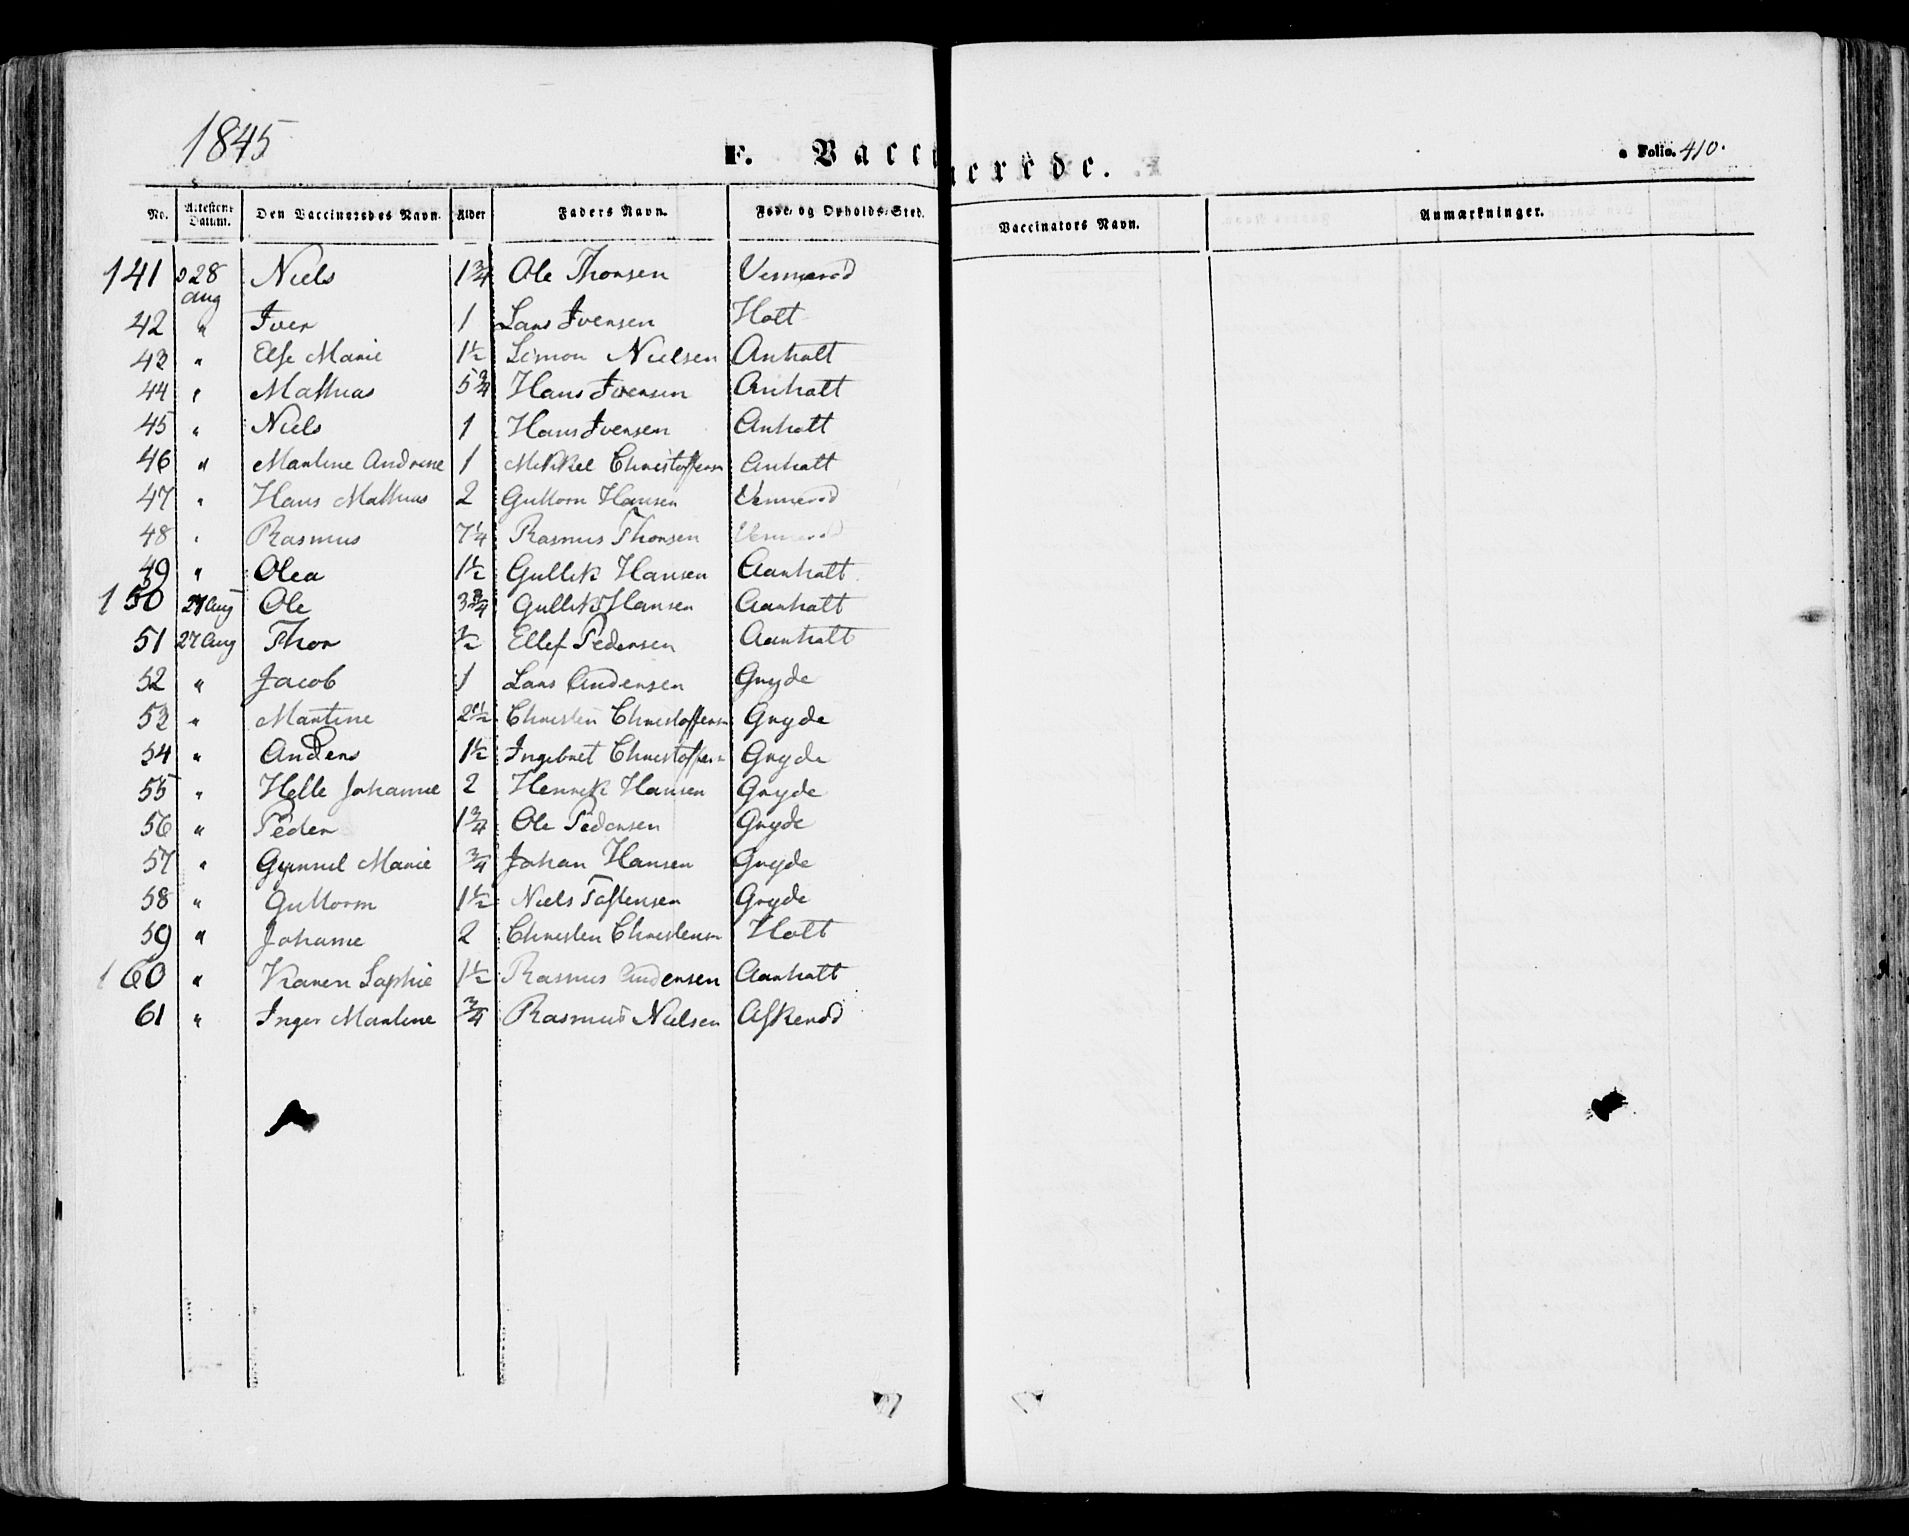 1845
F. Vaccinerede.
Folio. 410.
No. Attestens Datum. Den Vaccineredes Navn. Alder Faders Navn. Føde- og Opholds-Sted. Vaccinators Navn. Anmærkninger.
141 28 Aug Niels 1 3/4 Ole Thorsen Vennerød
42 " Iver 1 Lars Iversen Holt
43 " Else Marie 1 1/2 Simon Nielsen Anholt
44 " Mathias 5 3/4 Hans Iversen Anholt
45 " Niels 1 Hans Iversen Anholt
46 " Martine Andrine 1 Mikkel Christoffersn Anholt
47 " Hans Mathias 2 Guttorm Hansen Vennerød
48 " Rasmus 7 1/4 Rasmus Thorsen Vennerød
49 " Olea 1 1/2 Gullik Hansen Aanholt
150 27 Aug Ole 3 3/4 Gullik Hansen Aanholt
51 27 Aug Thor 1/2 Ellef Pedersen Aanholt
52 " Jacob 1 Lars Andersen Gryde
53 " Martine 2 1/2 Christen Christoffersn Gryde
54 " Anders 1 1/2 Ingebret Christoffersn Gryde
55 " Helle Johanne 2 Henrik Hansen Gryde
56 " Peder 1 3/4 Ole Pedersen Gryde
57 " Gunnil Marie 3/4 Johan Hansen Gryde
58 " Guttorm 1 1/2 Niels Tostensen Gryde
59 " Johanne 2 Christen Christensn Holt
160 " Karen Sophie 1 1/2 Rasmus Andersen Aanholt
61 " Inger Martine 3/4 Rasmus Nielsen Askerød